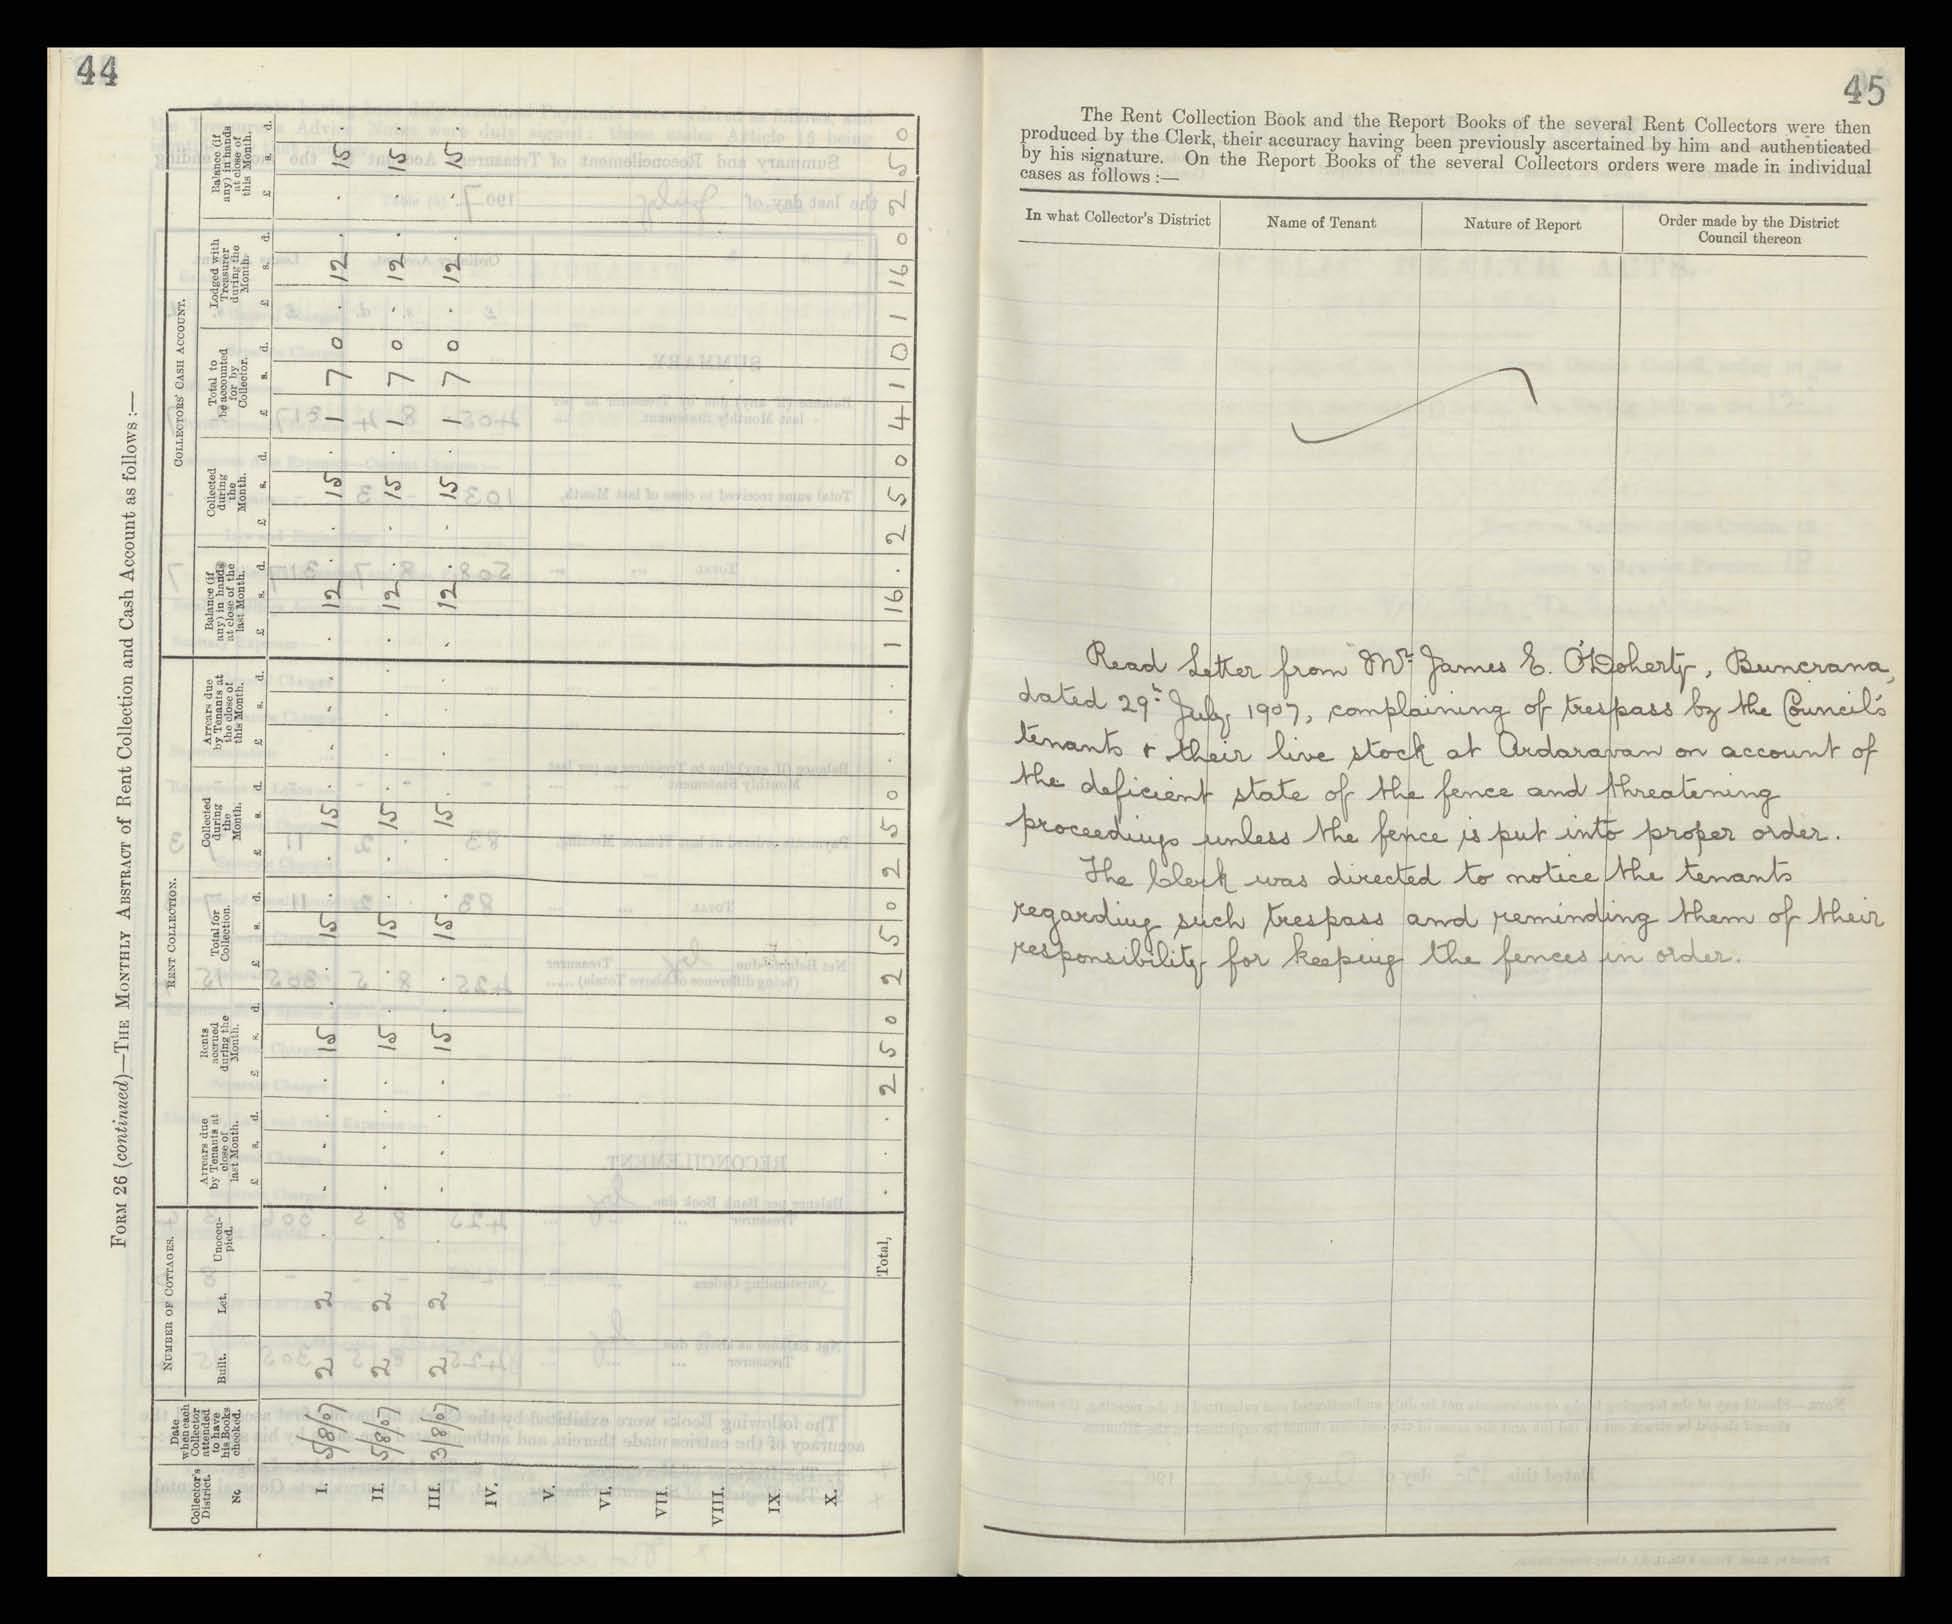 44
FORM 26 (continued)—THE MONTHLY ABSTRACT of Rent Collection and Cash Account as follows :—
NUMBER OF COTTAGES.
RENT COLLECTION.
COLLECTORS' CASH ACCOUNT.
Collector's District. No.
Date when each Collector attended to have his Books checked.
Built.
Let.
Unoccupied.
Arrears due by Tenants at close of last Month.
Rents accrued during the Month.
Total for Collection.
Collected during the Month.
Arrears due by Tenants at the close of this Month.
Balance (if any) in hands at close of the last Month.
Collected during the Month.
Total to be accounted for by Collector.
Lodged with Treasurer during the Month.
Balance (if any) in hands at close of this Month.
£ s. d. £ s. d. £ s. d. £ s. d. £ s. d. £ s. d. £ s. d. £ s. d. £ s. d. £ s. d.
I. 5/8/07 2 2 . . . . . 15 . . 15 . . 15 . . . . . 12 . . 15 . 1 7 0 . 12 . . 15 .
II. 5/8/07 2 2 . . . . . 15 . . 15 . . 15 . . . . . 12 . . 15 . 1 7 0 . 12 . . 15 .
III. 3/8/07 2 2 . . . . . 15 . . 15 . . 15 . . . . . 12 . . 15 . 1 7 0 . 12 . . 15 .
IV.
V.
VI.
VII.
VIII.
IX.
X.
Total, . . . 2 5 0 2 5 0 2 5 0 . . . 1 16 . 2 5 0 4 1 0 1 16 0 2 5 0
45
The Rent Collection Book and the Report Books of the several Rent Collectors were then
produced by the Clerk, their accuracy having been previously ascertained by him and authenticated
by his signature. On the Report Books of the several Collectors orders were made in individual
cases as follows :—
In what Collector's District
Name of Tenant
Nature of Report
Order made by the District Council thereon
Read Letter from Mr. James E. O'Doherty, Buncrana,
dated 29th July, 1907, complaining of trespass by the Council's
tenants & their live stock at Ardaravan on account of
the deficient state of the fence and threatening
proceedings unless the fence is put into proper order.
The Clerk was directed to notice the tenants
regarding such trespass and reminding them of their
responsibility for keeping the fences in order.